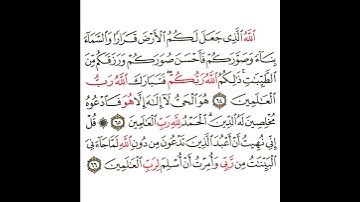 ٱللَّهُ ٱلَّذِى جَعَلَ لَكُمُ ٱلْأَرْضَ قَرَارًا وَٱلسَّمَآءَ
بِنَآءً وَصَوَّرَكُمْ فَأَحْسَنَ صُوَرَكُمْ وَرَزَقَكُم مِّنَ
ٱلطَّيِّبَٰتِ ۚ ذَٰلِكُمُ ٱللَّهُ رَبُّكُمْ ۖ فَتَبَارَكَ ٱللَّهُ رَبُّ
ٱلْعَٰلَمِينَ ٦٤ هُوَ ٱلْحَىُّ لَآ إِلَٰهَ إِلَّا هُوَ فَٱدْعُوهُ
مُخْلِصِينَ لَهُ ٱلدِّينَ ۗ ٱلْحَمْدُ لِلَّهِ رَبِّ ٱلْعَٰلَمِينَ ٦٥ ۞ قُلْ
إِنِّى نُهِيتُ أَنْ أَعْبُدَ ٱلَّذِينَ تَدْعُونَ مِن دُونِ ٱللَّهِ لَمَّا جَآءَنِىَ
ٱلْبَيِّنَٰتُ مِن رَّبِّى وَأُمِرْتُ أَنْ أُسْلِمَ لِرَبِّ ٱلْعَٰلَمِينَ ٦٦